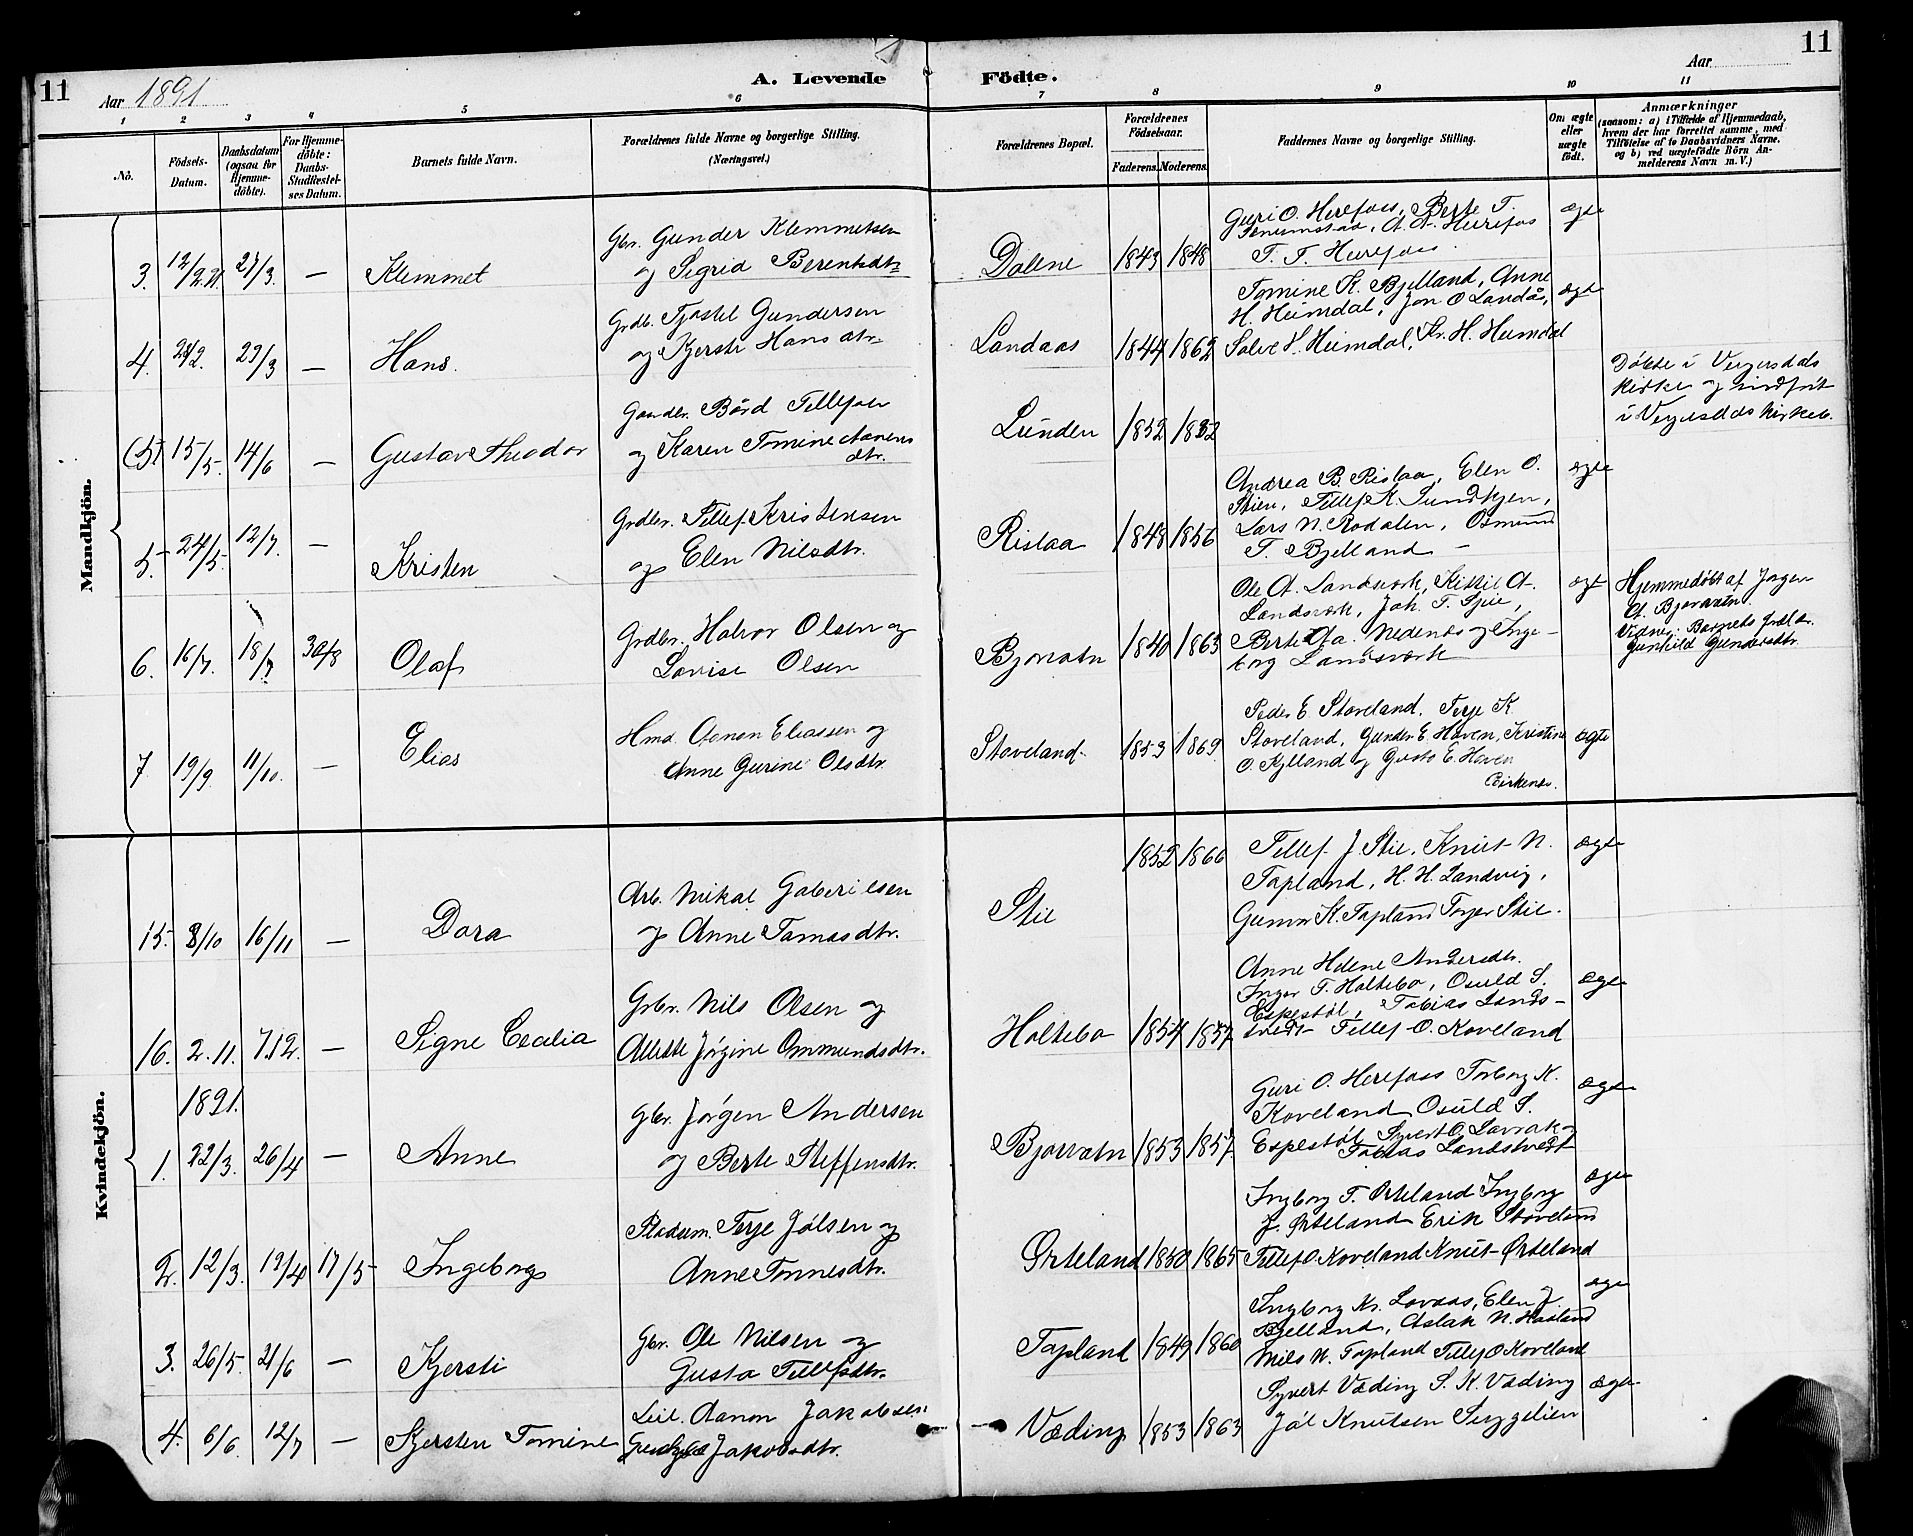 11
Aar 1891
A. Levende Födte.
Aar
11
1 2 3 4 5 6 7 8 9 10 11
No.
Födsels-Datum.
Daabsdatum (ogsaa for Hjemme-döbte).
For Hjemme-döbte: Daabs-Stadfæstel-ses Datum.
Barnets fulde Navn.
Forældrenes fulde Navne og borgerlige Stilling. (Næringsvei.)
Forældrenes Bopæl.
Forældrenes Födselsaar.
Faderens. Moderens.
Faddernes Navne og borgerlige Stilling.
Om ægte eller uægte födt.
Anmærkninger
(saasom: a) i Tilfælde af Hjemmedaab, hvem der har forrettet samme, med Tilföielse af to Daabsvidners Navne, og b) ved uægtefödte Börn An-melderens Navn m. V.)
Mandkjön.
Guri O. Herefoss, Berte T.
A. A. Herefos
T. T. Herefoss
3. 12/2 27/3. — Klemmet
Gbr. Gunder Klemmetsen
og Sigrid Berentsdtr
Dalene 1843 1848 ægte
Tomine K. Bjelland, Anne
H. Heimdal, Jon O Landås,
Salve H. Heimdal, Kr. H. Heimdal
4. 2/2. 29/3 — Hans.
Grdb. Tjostel Gundersen
og Kjersti Hansdtr
Landaas 1844 1862 ægte
(5) 15/5. 14/6 — Gustav Theodor
Gaardbr. Bård Tellefsen
og Karen Tomine Aanens
dtr.
Lunden 1852 1852
Döbte i Vegusdals
Kirke og indfört
i Vegusdals Kirkeb.
5. 24/5. 12/7. — Kristen
Grdbr. Tellef Kristensen
og Elen Nilsdtr.
Rislaa 1848 1856
Andrea B. Rislaa, Elen O.
Skien, Tellef K. Sundtjen,
Lars N. Rodalen, Osmund
T. Bjelland —
ægte
6. 16/7. 18/7 30/8 Olaf
Grdbr. Halvor Olsen og
Lovise Olsen
Bjorvatn 1840 1863
Ole A. Landsværk, Kittil A.
Landsværk, Joh. T. Skie,
Berte Nedenes og Inge-
borg Landsværk
ægte
Hjemmedöbt af Jörgen
A. Bjorvatn.
Vidner: Barnets Fader
Gunhild Gundersdtr.
7 19/9. 11/10. — Elias
Hmd. Aanon Eliassen og
Anne Gurine Olsdtr.
Stoveland. 1853 1869
Peder E Stoveland. Terje K
Stoveland, Gunder E Haven, Kristine
O. Kylland og Gusto E. Haven
Birkenes.
ægte
Kvindekjön.
15. 8/10 16/11 — Dora
Arb. Mikal Gaberilsen
og Anne Tomasdtr.
Skie 1852 1866
Tellef J. Skie, Knut N.
Topland, H. H. Landvig,
Gunvor K. Topland Torjer Skie.
ægte
16. 2.11. 7.12. — Signe Cecilia
Grbr. Nils Olsen og
Allette Jörgine Ommundsdtr.
Holtebo 1854 1857
Anne Helene Andersdtr.
Inger T. Holtebo, Osuld S.
Espestöl, Tobias Lands-
tvedt Tellef O. Koveland
ægte
1891.
1. 22/3. 26/4 — Anne
Gbr. Jörgen Andersen
og Berte Steffensdtr.
Bjorvatn 1853 1857
Guri O. Herefoss Torborg K.
Koveland Osuld S.
Espestöl Syvert O. Lavrak og
Tobias Landstvedt
ægte
2. 12/3. 19/4 17/5 Ingeborg
Pladsm. Terje Jölsen og
Anne Tonnesdtr.
Örteland 1850 1865
Ingborg T. Örteland Ingborg
J. Örteland Erik Stoveland
Tellef O. Koveland Knut Örteland
ægte
3. 26/5. 21/6 — Kjersti
Gbr. Ole Nilsen og
Gusta Tellefsdtr.
Topland 1849 1860
Ingborg Kr. Lovaas, Elen J
Bjelland, Aslak N. Haaland
Nils N. Topland Tellef O Koveland
ægte
4. 6/6 12/7 — Kjersten Tomine
Leil. Aanon Jakobsen
Jakobsdtr.
Væding 1853 1863
Syvert Væding S. K. Væding
Jöl Knutsen Senggelien
ægte